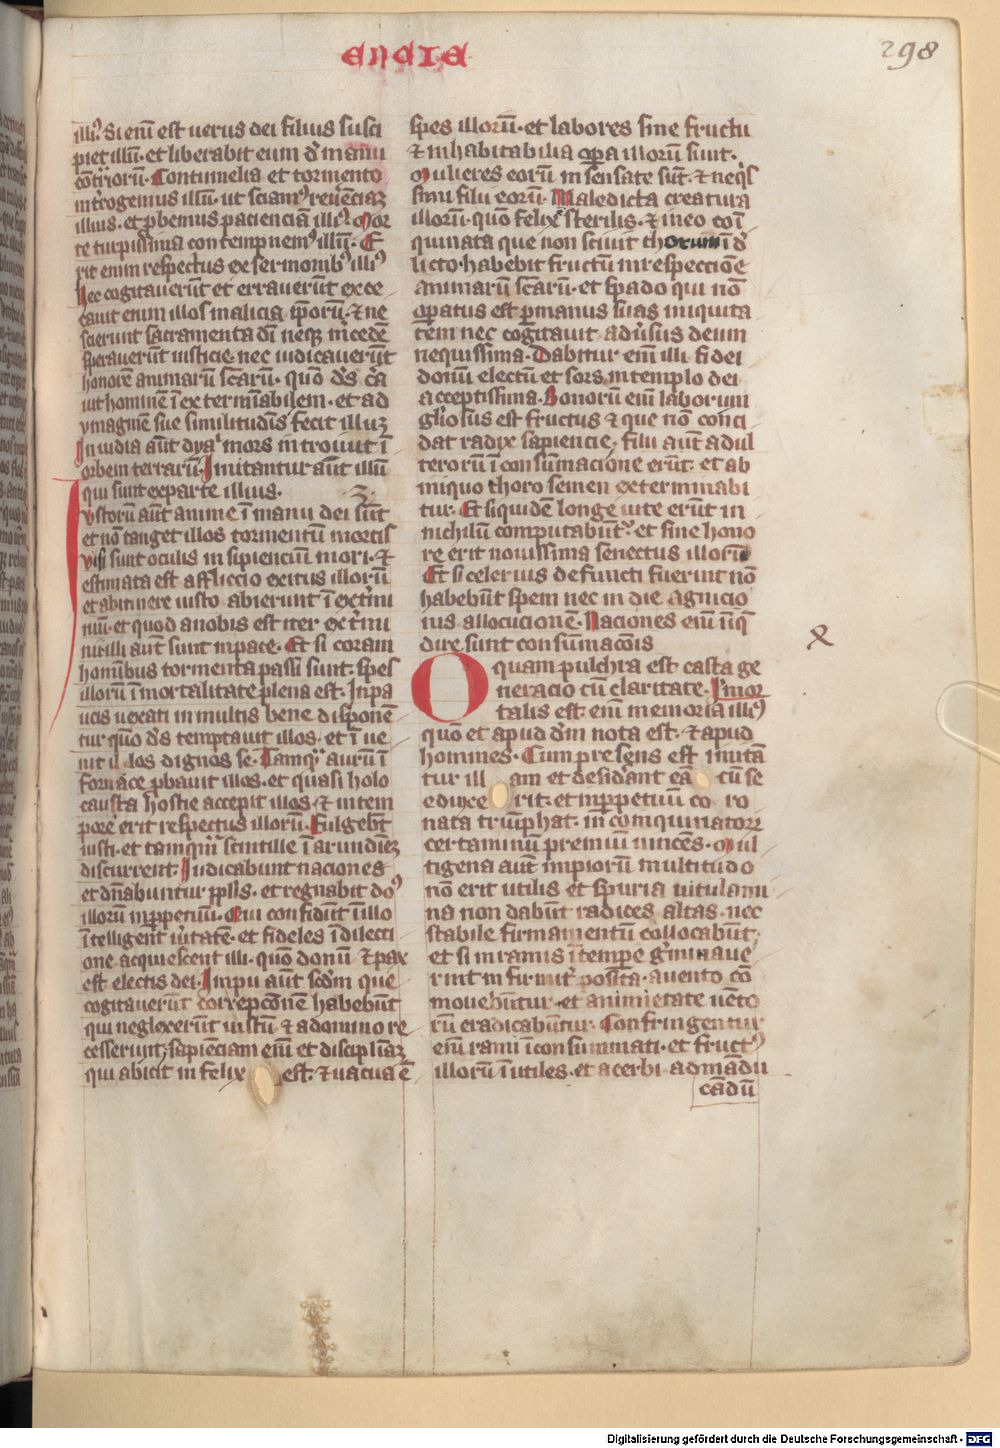 encie
298
illiꝰ. Si eni̅ est uerus dei filius susci
piet illu̅· et liberabit eum d̕ manu
co̅trariorū· Contumelia et tormento
int̕rogemus illu̅· ut sciamꝰ reue̅ciaꝫ
illius· et p̱bemus paciencia̅ illiꝰ. Mor
te turpissima contempnemꝰ illu̅· E
rit enim respectus ex sermonibꝰ illiꝰ
Hec cogitauerūt et errauerūt exce
cauit enim illos malicia ip̅orū· ⁊ ne
scierunt sacramenta dī neqꝫ m̕cede̅
sperauerūt iusticie nec iudicauerūt
honore̅ animarū sc̅arū· quo̅ d̅s c̅a
uit homine̅ i̅exterminabilem· et ad
ymagine̅ sue similitudīs fecit illuꝫ
Inuidia au̅t dya̅ mors introiuit i̅
orbem terrarū· Imitantur au̅t illu̅
qui sunt ex parte illius. 3.
Iustoru̅ au̅t anime i̅ manu dei sūt
et no̅ tanget illos tormentū mortis
visi sunt oculis insipienciu̅ mori· ⁊
estimata est affliccio exitus illorū
et abitinere iusto abierunt i̅ ext̕mi
niū· et quod anobis est iter ext̕mi
nii· illi au̅t sunt inpace· Et si coram
homi̅bus tormenta passi sunt· spes
illorū i̅mortalitate plena est. Inpa
ucis uexati in multis bene dispone̅
tur quo̅ d̅s temptauit illos· et i̅ue
nit il los dignos se· Tamqͣ aurū i̅
fornace p̱bauit illos· et quasi holo
causta hostie accepit illos· ⁊ in tem
pore erit respectus illorū· Fulgebūt
iusti· et tamqͣ scintille i̅ arundi̅eꝫ
discurrent· Iudicabunt naciones
et dn̅abuntur pp̅lis· et regnabit do̅ꝰ
illorū inp̱petuu̅· Qui confidūt i̅ illo
i̅telligent u̕itate̅· et fideles i̅ dilecti
one acquiescent illi· quo̅ donū ⁊ pax
est electis dei· Impii au̅t sc̅dm que
cogitauerūt correpco̅ne̅ habebūt
qui neglexerūt iustū· ⁊ a domino re
cesserunt· sapie̅ciam eni̅ et discipli̅aꝫ
qui abicit infelix est· ⁊ uacua e̅
spes illorū· et labores sine fructu
⁊ inhabitabilia op̱a illorū sunt·
Mulieres eorū insensate sūt· ⁊ neq̅s
simi filii eorū· Maledicta creatura
illorū· quo̅ felix sterilis· ⁊ ineo coi̅
quinata que non sciuit thorum i̅ d̕
licto· habebit fructū inrespeccio̅e
animarū sc̅arū· et spado qui no̅
op̱atus est p̱ manus suas iniquita
tem nec cogitauit adu̕sus deum
nequissima· Dabitur eni̅ illi fidei
donū electū et sors in templo dei
acceptissima· Bonorū eni̅ laborum
gl̅iosus est fructus ⁊ que no̅ conci
dat radix sapiencie· filii au̅t adul
terorū i̅ consu̅macione erūt· et ab
iniquo thoro semen exterminabi
tur· Et siquide̅ longe uite erūt in
nichilū computabūtꝰ· et sine hono
re erit nouissima senectus illorū
Et si celerius defuncti fuerint no̅
habebūt spem nec in die agnicio
nis allocucione̅· Naciones eni̅ i̅iq̅
dire sunt consu̅maco̅is
O quam pulchra est casta ge
neracio cū claritate· I̅mor
talis est eni̅ memoria illiꝰ
quo̅ et apud d̅m nota est· ⁊ apud
hommes· Cum presens est imita̅
tur ill am et desid̕ant ea̅ cū se
eduxe rit· et inp̱petuu̅ co ro
nata triu̅phat· in comquinatorꝝ
certaminū premiu̅ uince̅s· Mul
tigena au̅t impiorū multitudo
no̅ erit utilis et spuria uitulami
na non dabūt radices altas· nec
stabile firmamentū collocabūt·
et si inramis i̅ tempe g̕minaue
rint infirmit̕ posita· auento co̅
mouebūtur· et animietate ue̅to
rū eradicabūtur· Confringentur
eni̅ rami i̅consummati· et fructꝰ
illorū i̅utiles· et acerbi· admādu
cādū
Digitalisierung gefördert durch die Deutsche Forschungsgemeinschaft - DFG